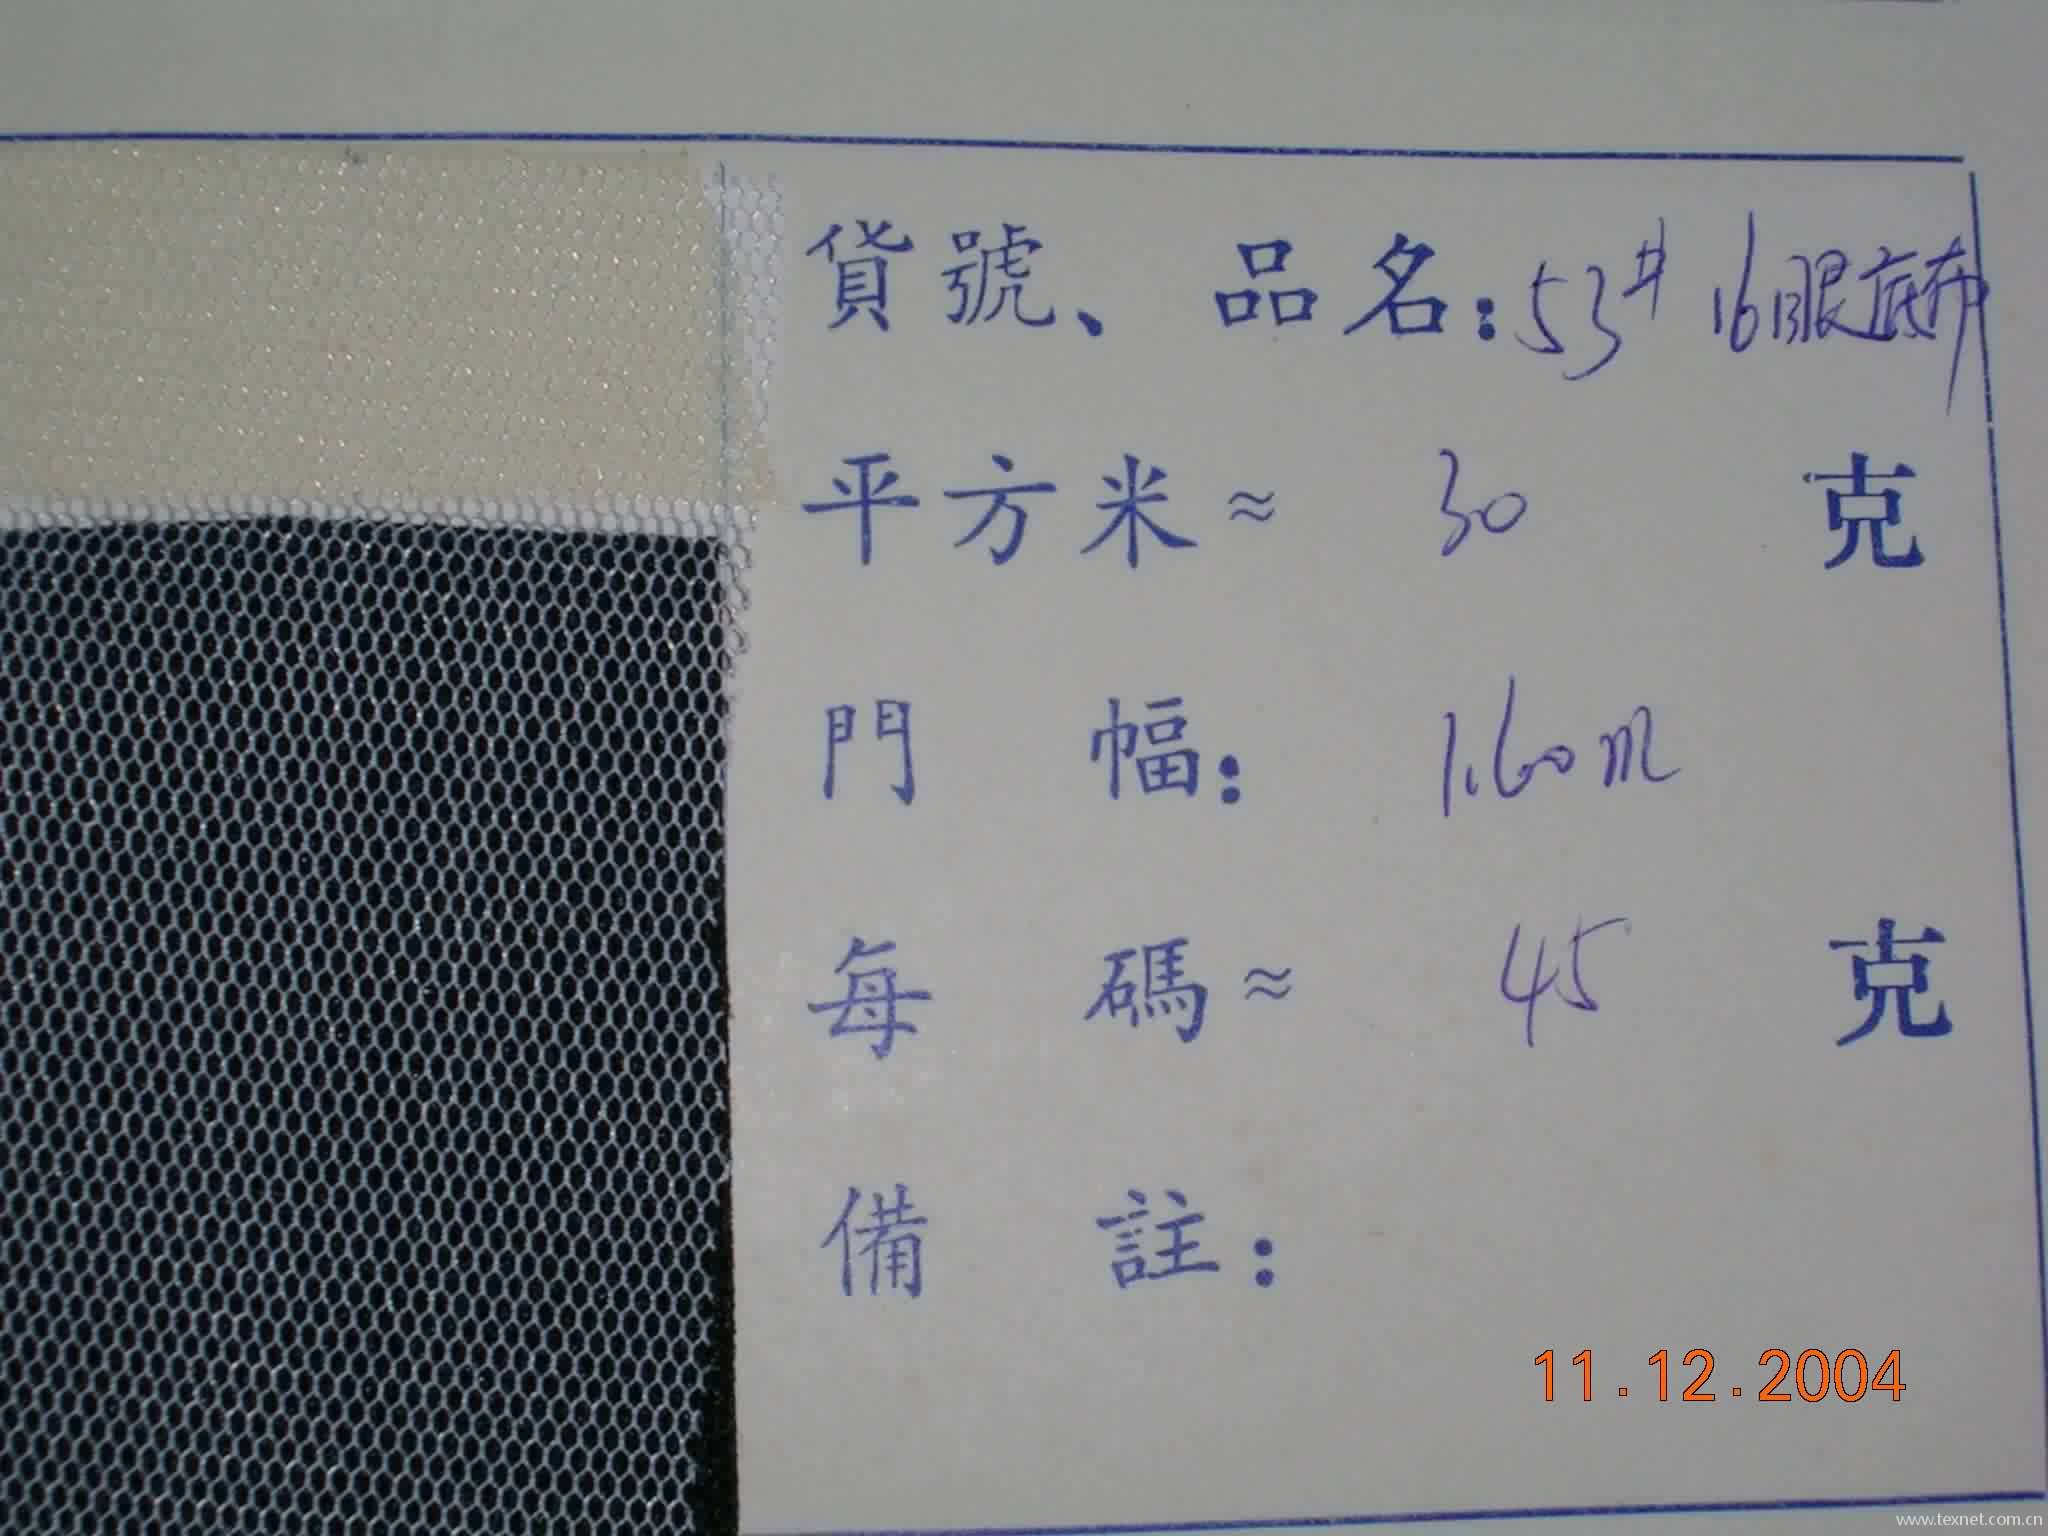 貨號、品名：53# 16眼底布
平方米≈ 30 克
門幅：1.60m
每碼≈ 45 克
備註：
11.12.2004
www.texnet.com.cn